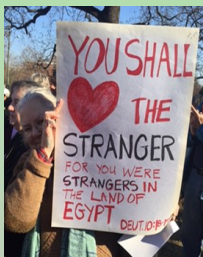 YOU SHALL
THE
STRANGER
FOR YOU WERE
STRANGERS IN
THE LAND OF
EGYPT
DEUT. 10: